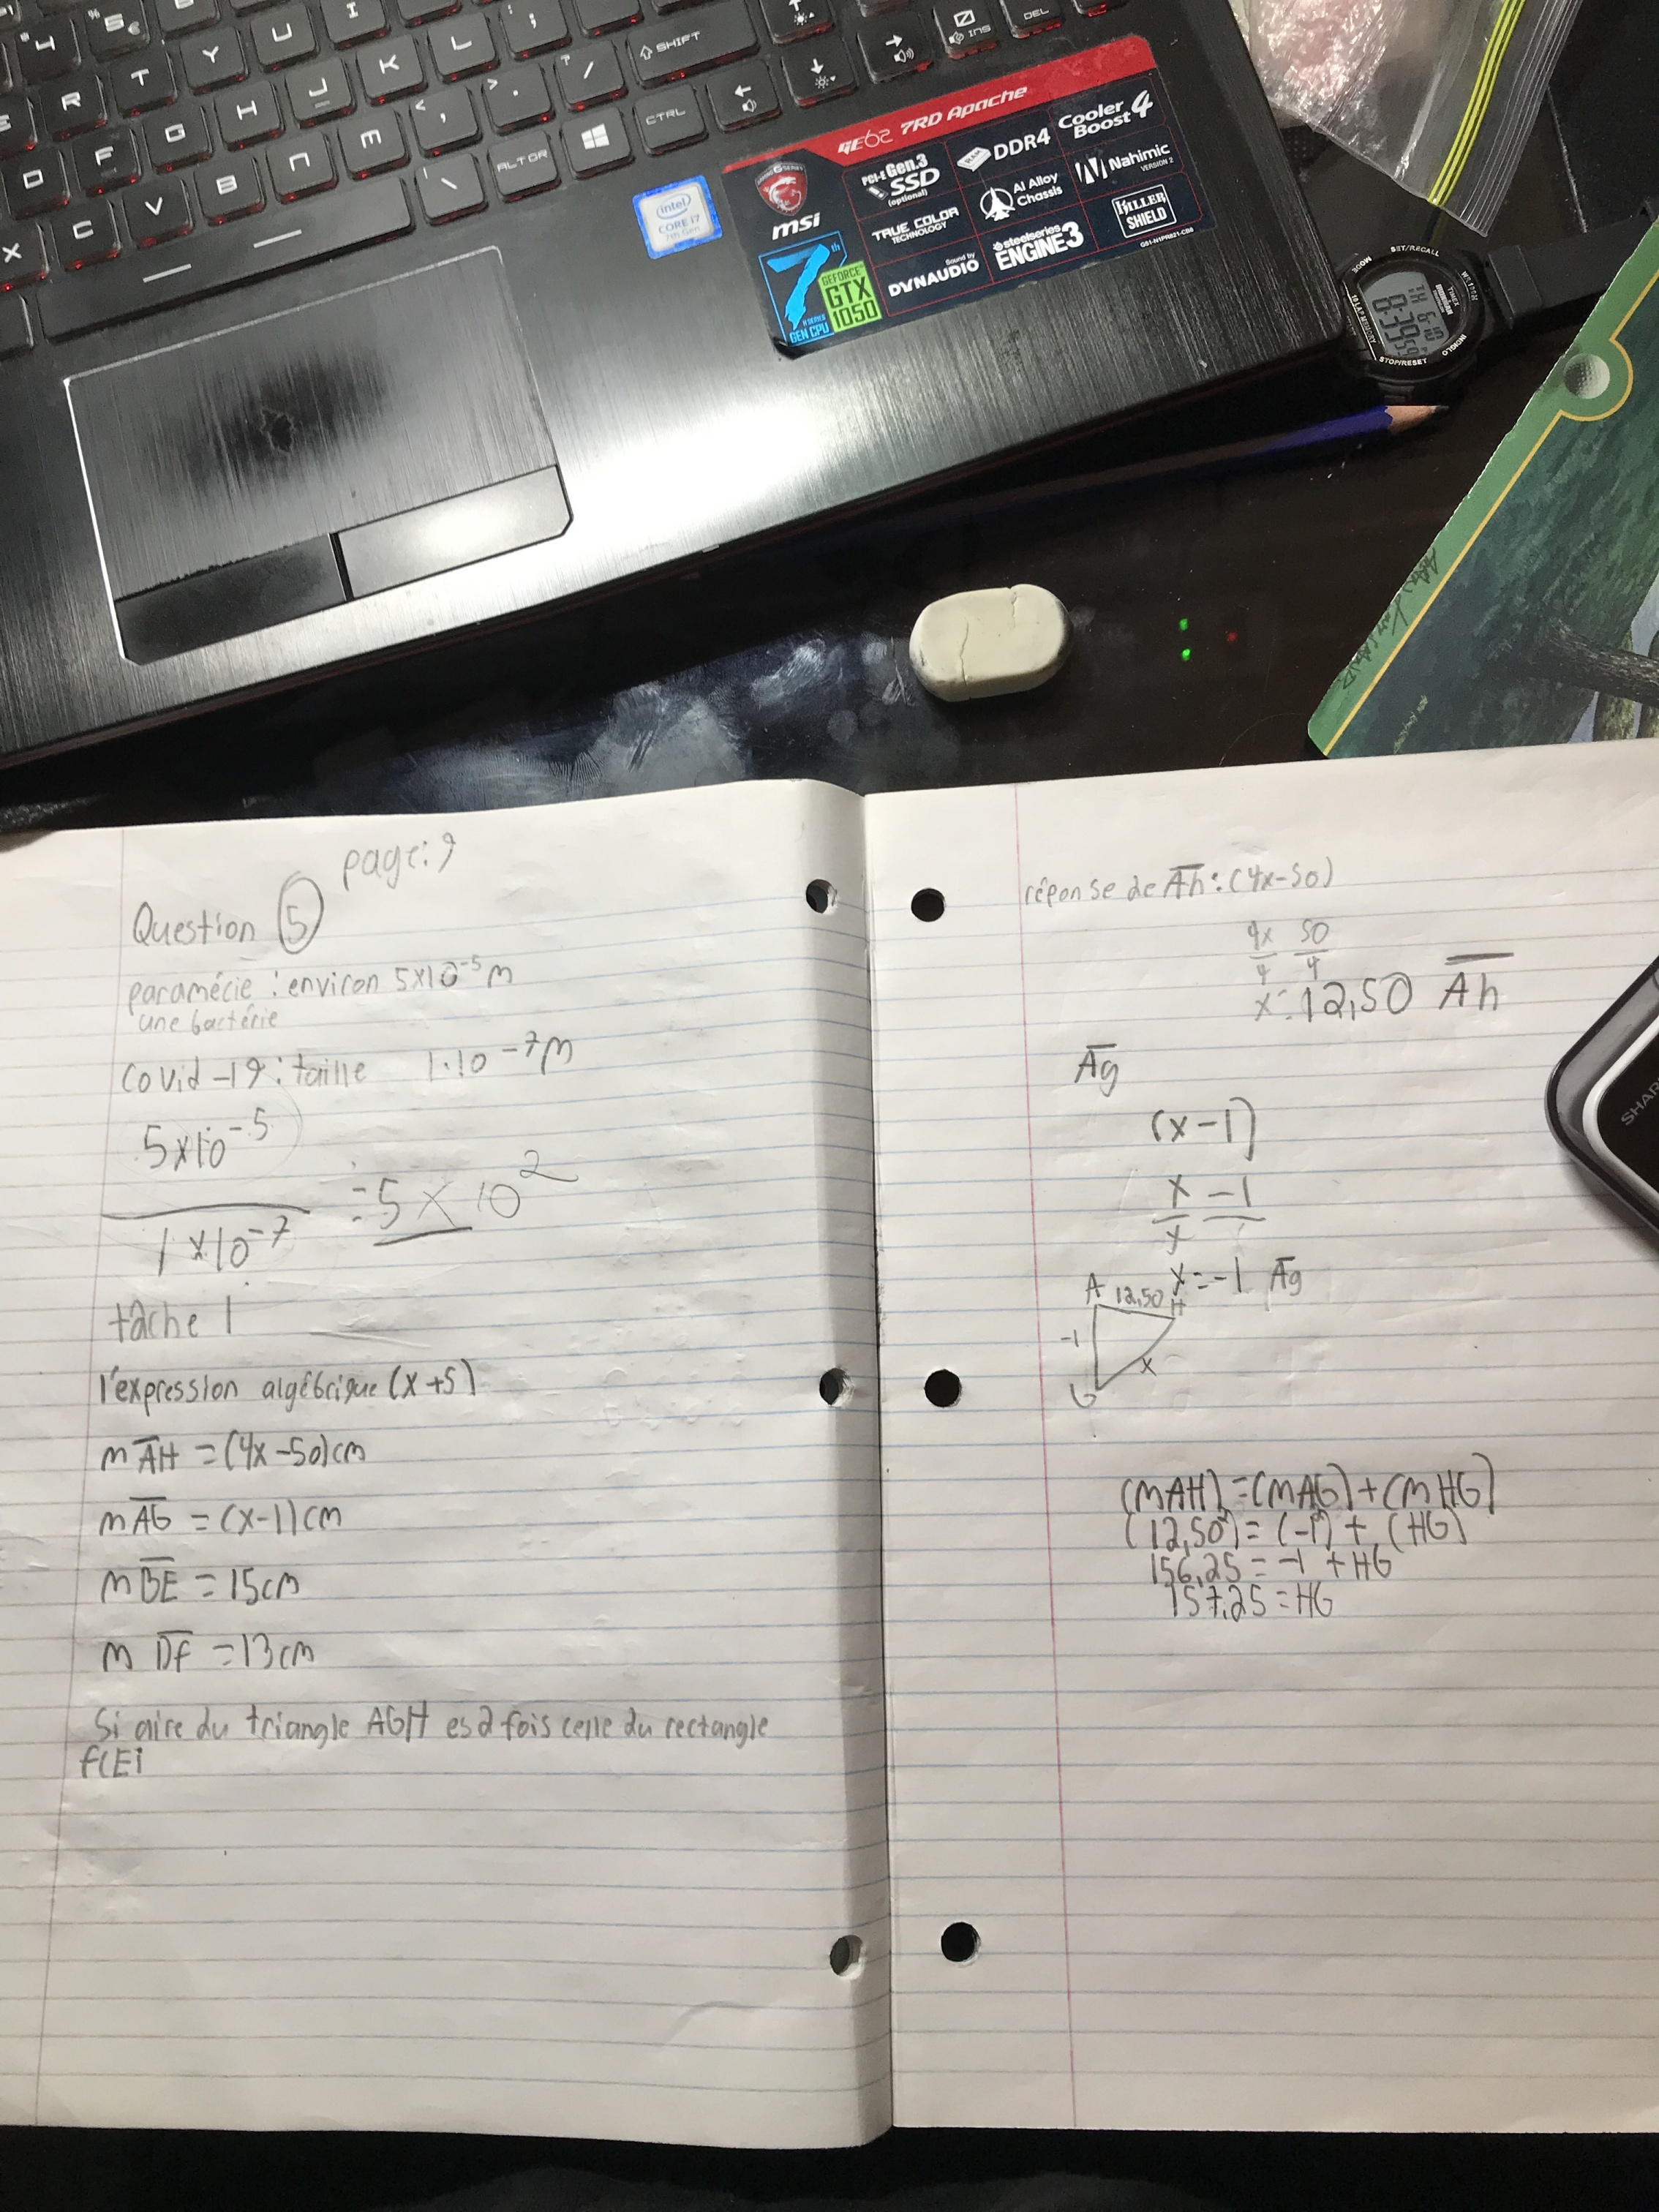 4 % 5 € U I ; SHIFT INS DEL
R T Y J K L
D F G H < , > . ? / CTRL
X C V B N M ALT GR
GE62 7RD Apache
msi
PCI-E Gen.3 SSD (optional)
RAM DDR4
Cooler Boost 4
TRUE COLOR TECHNOLOGY
Al Alloy Chassis
Nahimic VERSION 2
Sound by DYNAUDIO
steelseries ENGINE3
KILLER SHIELD
7th H SERIES GEN CPU
GEFORCE GTX 1050
intel CORE i7 7th Gen
SET/RECALL
MODE
TIMEX
IRONMAN
INDIGLO
STOP/RESET
8:39
SHAR
page: 9
Question 5
paramécie : environ 5x10⁻⁵ m
une bactérie
Covid-19 : taille 1·10⁻⁷ m
5x10⁻⁵
= 5 x 10²
1 x 10⁻⁷
tâche 1
l'expression algébrique (x+5)
m AH = (4x-50)cm
m AG = (x-1)cm
m BE = 15cm
m DF = 13cm
Si aire du triangle AGH es 2 fois celle du rectangle
fCEi
réponse de Ah : (4x-50)
4x 50
4 4
x = 12,50 Ah
Ag
(x-1)
x -1
x
x = -1 Ag
A 12,50 H
-1
x
G
(mAH) = (mAG) + (mHG)
(12,50²) = (-1²) + (HG)
156,25 = -1 + HG
157,25 = HG